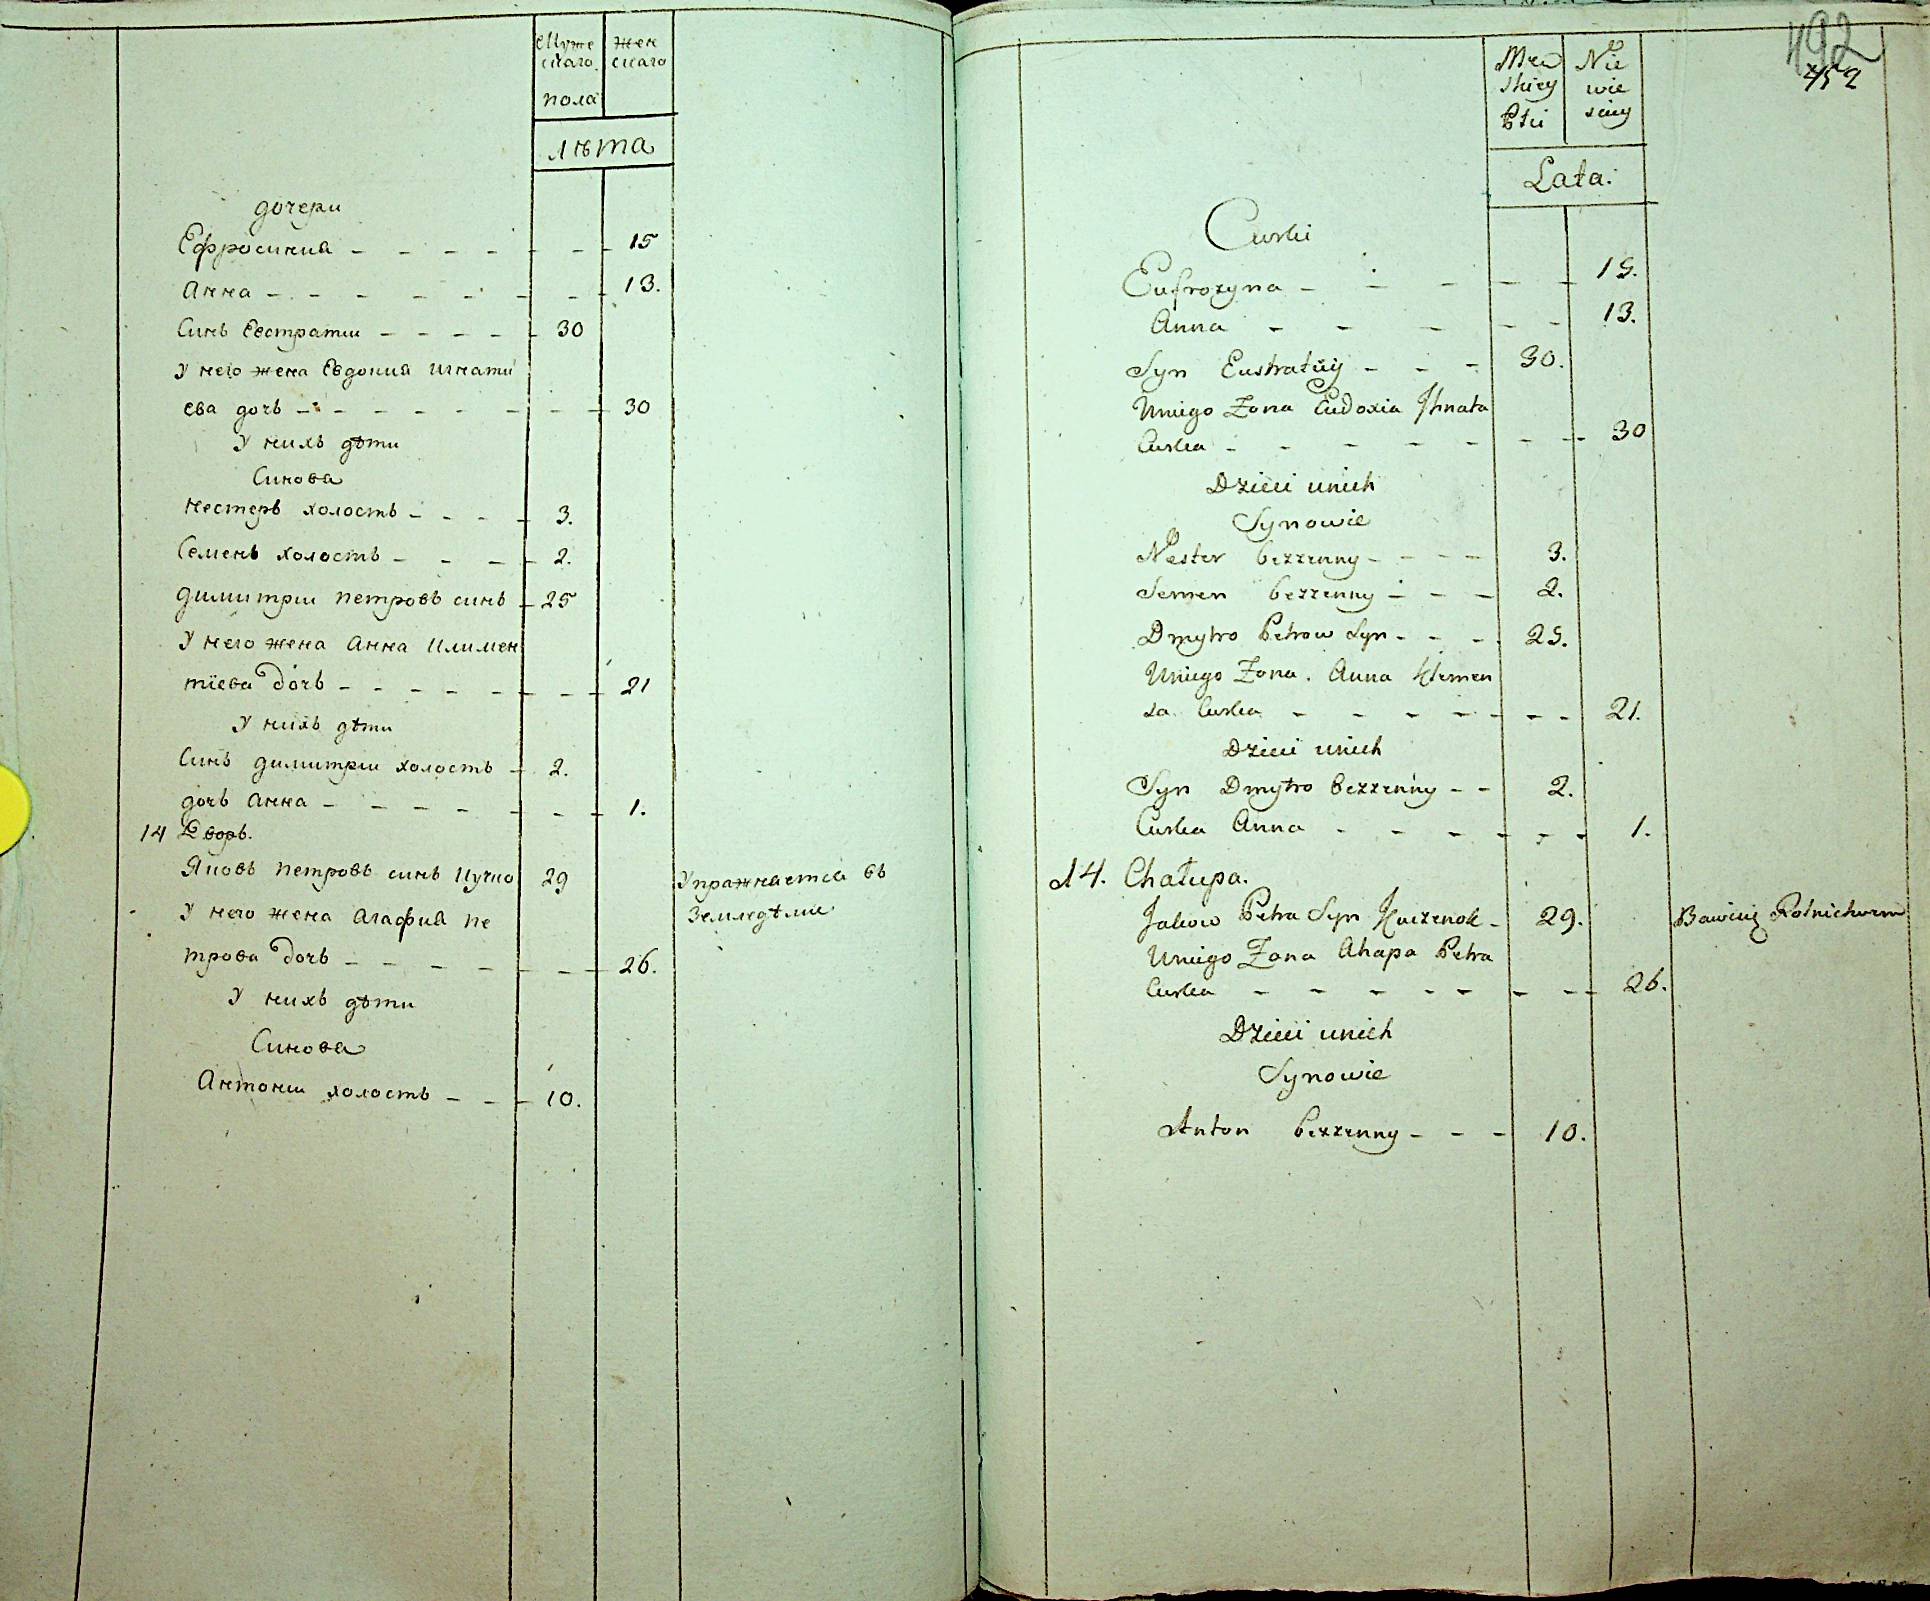 Муже жен
скаго скаго
пола
лѣта
дочери
Ефросиния - - - - - - 15
Анна - - - - - - - 13.
Синъ Евстратии - - - - - 30
У него жена Евдокия Игнати
ева дочь - - - - - - - - 30
У нихъ дѣти
Синова
Нестеръ холостъ - - - - 3.
Семенъ холостъ - - - - 2.
Димитрии Петровъ синъ - 25
У него жена Анна Климен
тіева дочь - - - - - - - - 21
У нихъ дѣти
Синъ Димитрии холостъ - 2.
дочь Анна - - - - - - - 1.
14 Дворъ.
Яковъ Петровъ синъ Кучко 29 Упражнается въ
У него жена Агафия Пе Земледѣлии
трова дочь - - - - - - - 26.
У нихъ дѣти
Синова
Антонии холостъ - - - 10.
492
452
Męz Nie
skiey wie
Płci sciey
Lata.
Curki
Eufrozyna - - - - - 15.
Anna - - - - - 13.
Syn Eustatiy - - - 30.
Uniego Zona Eudoxia Ihnata
Curka - - - - - - - 30
Dzieci unich
Synowie
Nester bezzenny - - - - 3.
Semen bezzenny - - - 2.
Dmytro Petrow Syn - - - 25.
Uniego Zona. Anna Klemen
sa Curka - - - - - - - 21.
Dzieci unich
Syn Dmytro bezzenny - - 2.
Curka Anna - - - - - - 1.
14. Chałupa.
Jakow Petra Syn Kuczenok - 29. Bawiąię Rolnictwem
Uniego Zona Ahapa Petra
Curka - - - - - - - - 26.
Dzieci unich
Synowie
Anton bezzenny - - - 10.